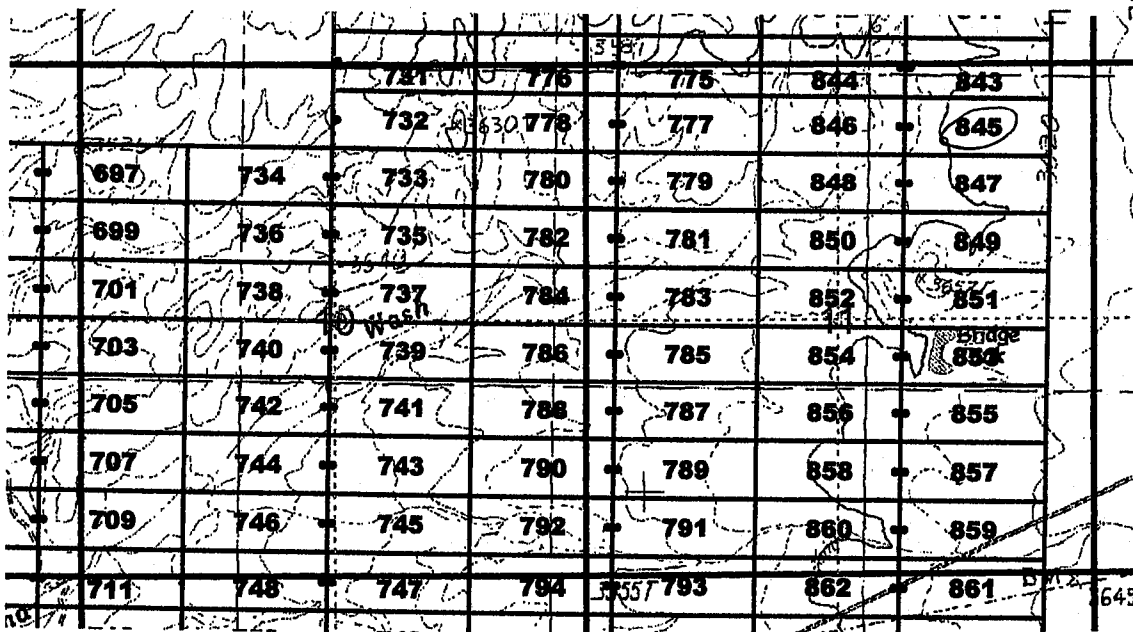 3481
731 776 775 844 843
732 x3630T 778 777 846 845
697 734 733 780 779 848 847
699 736 735 782 781 850 849
701 738 737 784 783 852 851
10 Wash 11
703 740 739 786 785 854 Bridge 853
705 742 741 788 787 856 855
707 744 743 790 789 858 857
709 746 745 792 791 860 859
711 748 747 794 3555T 793 862 861
3645